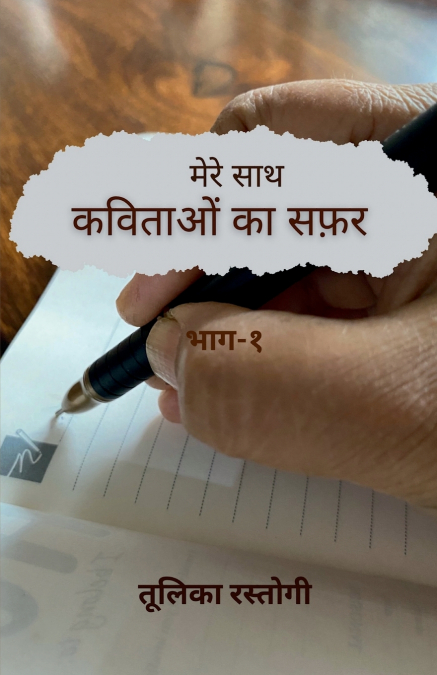 मेरे साथ
कविताओं का सफ़र
भाग-१
तूलिका रस्तोगी